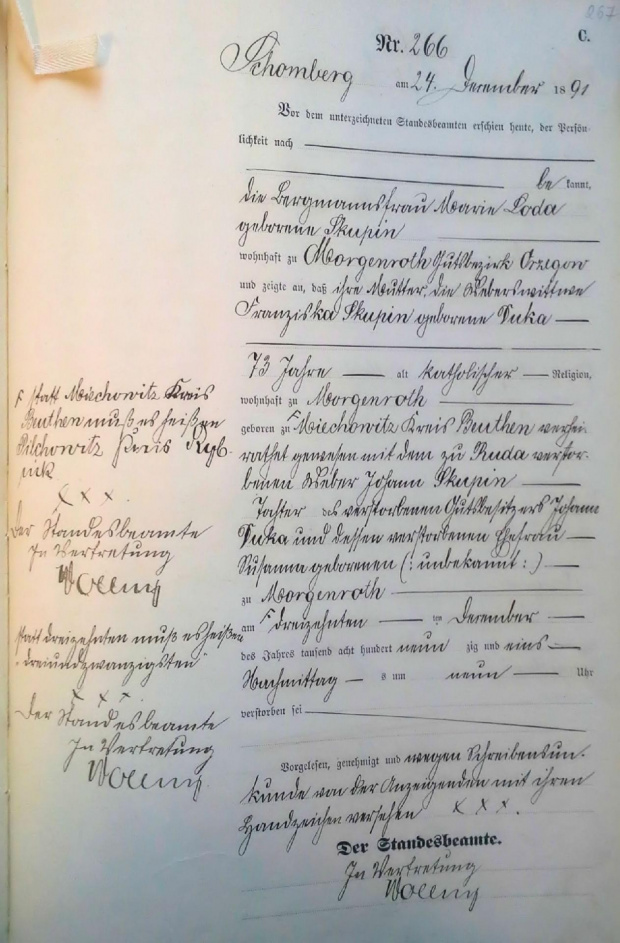 267
C.
Nr. 266
Schomberg am 24. December 1891
Vor dem unterzeichneten Standesbeamten erschien heute, der Persön-
lichkeit nach
be kannt,
die Bergmannsfrau Marie Loda
geborene Skupin
wohnhaft zu Morgenroth Gutsbezirk Orzegow
und zeigte an, daß ihre Mutter, die Weberswittwe
Franziska Skupin geborene Duka
73 Jahre alt katholischer Religion,
wohnhaft zu Morgenroth
geboren zu Miechowitz Kreis Beuthen verhei-
rathet gewesen mit dem zu Ruda verstor-
benen Weber Johann Skupin
Tochter des verstorbenen Gutsbesitzers Johann
Duka und dessen verstorbenen Ehefrau
Susanna geborenen (: unbekannt :)
zu Morgenroth
am dreizehnten December
des Jahres tausend acht hundert neun zig und eins
Nachmittag s um neun Uhr
verstorben sei
Vorgelesen, genehmigt und wegen Schreibensun-
kunde von der Anzeigenden mit ihren
Handzeichen versehen x x x.
Der Standesbeamte.
In Vertretung
statt Miechowitz Kreis
Beuthen muß es heißen
Pilchowitz Kreis Ryb-
nik
x x x.
Der Standesbeamte
In Vertretung
statt dreizehnten muß es heißen
"dreiundzwanzigsten"
x x x
Der Standesbeamte
In Vertretung